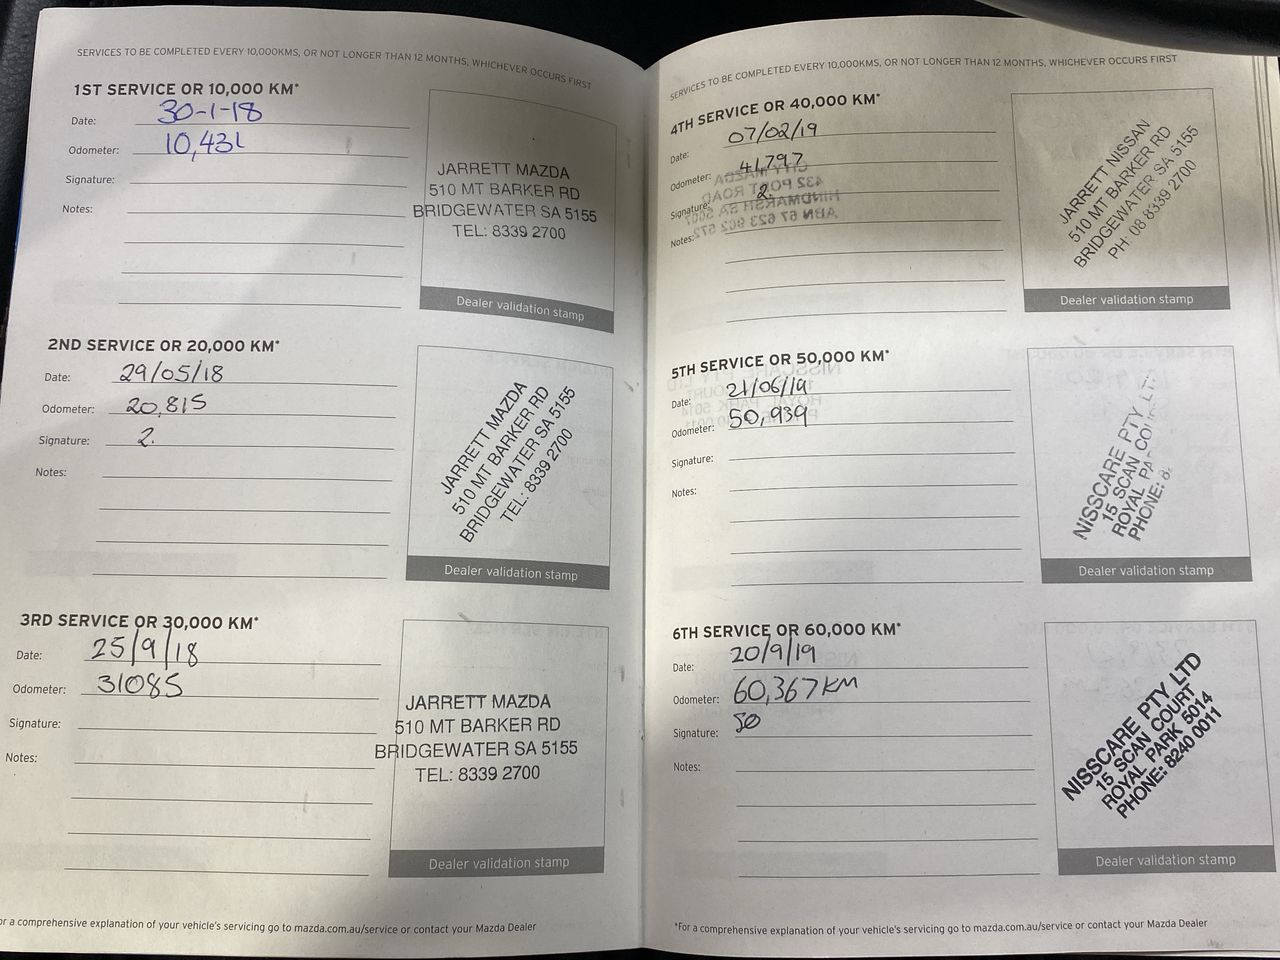 SERVICES TO BE COMPLETED EVERY 10,000KMS, OR NOT LONGER THAN 12 MONTHS, WHICHEVER OCCURS FIRST
1ST SERVICE OR 10,000 KM*
Date: 30-1-18
Odometer: 10,431
Signature:
Notes:
JARRETT MAZDA
510 MT BARKER RD
BRIDGEWATER SA 5155
TEL: 8339 2700
Dealer validation stamp
2ND SERVICE OR 20,000 KM*
Date: 29/05/18
Odometer: 20,815
Signature: 2.
Notes:
JARRETT MAZDA
510 MT BARKER RD
BRIDGEWATER SA 5155
TEL: 8339 2700
Dealer validation stamp
3RD SERVICE OR 30,000 KM*
Date: 25/9/18
Odometer: 31085
Signature:
Notes:
JARRETT MAZDA
510 MT BARKER RD
BRIDGEWATER SA 5155
TEL: 8339 2700
Dealer validation stamp
or a comprehensive explanation of your vehicle's servicing go to mazda.com.au/service or contact your Mazda Dealer
SERVICES TO BE COMPLETED EVERY 10,000KMS, OR NOT LONGER THAN 12 MONTHS, WHICHEVER OCCURS FIRST
4TH SERVICE OR 40,000 KM*
Date: 07/02/19
Odometer: 41,797
Signature: 2.
Notes:
CITY MAZDA
432 PORT ROAD
HINDMARSH SA 5007
ABN 67 623 902 572
JARRETT NISSAN
510 MT BARKER RD
BRIDGEWATER SA 5155
PH: 08 8339 2700
Dealer validation stamp
5TH SERVICE OR 50,000 KM*
Date: 21/06/19
Odometer: 50,939
Signature:
Notes:
NISSCARE PTY LT
15 SCAN COU
ROYAL PA
PHONE: 8
Dealer validation stamp
6TH SERVICE OR 60,000 KM*
Date: 20/9/19
Odometer: 60,367KM
Signature: SO
Notes:
NISSCARE PTY LTD
15 SCAN COURT
ROYAL PARK 5014
PHONE: 8240 0011
Dealer validation stamp
*For a comprehensive explanation of your vehicle's servicing go to mazda.com.au/service or contact your Mazda Dealer